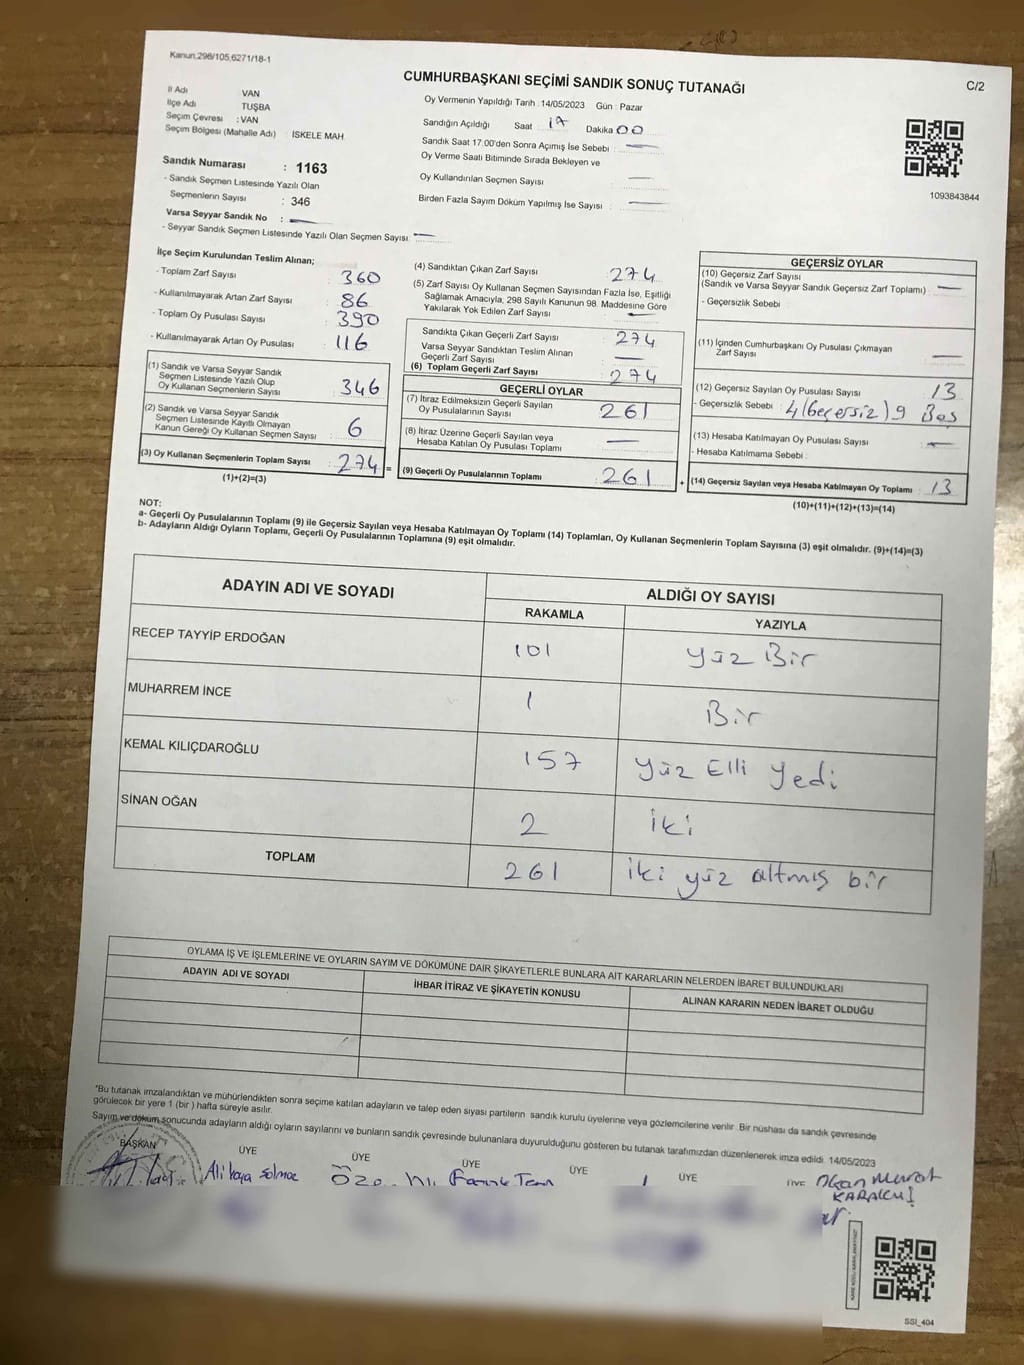 Kanun.298/105.6271/18-1
CUMHURBAŞKANI SEÇİMİ SANDIK SONUÇ TUTANAĞI
C/2
İl Adı VAN
İlçe Adı TUŞBA
Seçim Çevresi : VAN
Seçim Bölgesi (Mahalle Adı) : İSKELE MAH
Sandık Numarası : 1163
- Sandık Seçmen Listesinde Yazılı Olan
Seçmenlerin Sayısı : 346
Varsa Seyyar Sandık No :
- Seyyar Sandık Seçmen Listesinde Yazılı Olan Seçmen Sayısı
Oy Vermenin Yapıldığı Tarih : 14/05/2023 Gün : Pazar
Sandığın Açıldığı Saat : 17 Dakika 00
Sandık Saat 17.00'den Sonra Açımış İse Sebebi :
Oy Verme Saati Bitiminde Sırada Bekleyen ve
Oy Kullandırılan Seçmen Sayısı
Birden Fazla Sayım Döküm Yapılmış İse Sayısı
1093843844
İlçe Seçim Kurulundan Teslim Alınan;
- Toplam Zarf Sayısı : 360
- Kullanılmayarak Artan Zarf Sayısı : 86
- Toplam Oy Pusulası Sayısı : 390
- Kullanılmayarak Artan Oy Pusulası : 116
(1) Sandık ve Varsa Seyyar Sandık
Seçmen Listesinde Yazılı Olup
Oy Kullanan Seçmenlerin Sayısı : 346
(2) Sandık ve Varsa Seyyar Sandık
Seçmen Listesinde Kayıtlı Olmayan
Kanun Gereği Oy Kullanan Seçmen Sayısı : 6
(3) Oy Kullanan Seçmenlerin Toplam Sayısı : 274 =
(1)+(2)=(3)
(4) Sandıktan Çıkan Zarf Sayısı : 274
(5) Zarf Sayısı Oy Kullanan Seçmen Sayısından Fazla İse, Eşitliği
Sağlamak Amacıyla, 298 Sayılı Kanunun 98. Maddesine Göre
Yakılarak Yok Edilen Zarf Sayısı
Sandıkta Çıkan Geçerli Zarf Sayısı : 274
Varsa Seyyar Sandıktan Teslim Alınan
Geçerli Zarf Sayısı
(6) Toplam Geçerli Zarf Sayısı : 274
GEÇERLİ OYLAR
(7) İtiraz Edilmeksizin Geçerli Sayılan
Oy Pusulalarının Sayısı : 261
(8) İtiraz Üzerine Geçerli Sayılan veya
Hesaba Katılan Oy Pusulası Toplamı
(9) Geçerli Oy Pusulalarının Toplamı : 261 +
GEÇERSİZ OYLAR
(10) Geçersiz Zarf Sayısı
(Sandık ve Varsa Seyyar Sandık Geçersiz Zarf Toplamı) :
- Geçersizlik Sebebi
(11) İçinden Cumhurbaşkanı Oy Pusulası Çıkmayan
Zarf Sayısı
(12) Geçersiz Sayılan Oy Pusulası Sayısı : 13
- Geçersizlik Sebebi : 4(Geçersiz) 9 Boş
(13) Hesaba Katılmayan Oy Pusulası Sayısı
- Hesaba Katılmama Sebebi :
(14) Geçersiz Sayılan veya Hesaba Katılmayan Oy Toplamı : 13
(10)+(11)+(12)+(13)=(14)
NOT:
a- Geçerli Oy Pusulalarının Toplamı (9) ile Geçersiz Sayılan veya Hesaba Katılmayan Oy Toplamı (14) Toplamları, Oy Kullanan Seçmenlerin Toplam Sayısına (3) eşit olmalıdır. (9)+(14)=(3)
b- Adayların Aldığı Oyların Toplamı, Geçerli Oy Pusulalarının Toplamına (9) eşit olmalıdır.
ADAYIN ADI VE SOYADI
ALDIĞI OY SAYISI
RAKAMLA YAZIYLA
RECEP TAYYİP ERDOĞAN 101 Yüz Bir
MUHARREM İNCE 1 Bir
KEMAL KILIÇDAROĞLU 157 Yüz Elli Yedi
SİNAN OĞAN 2 İki
TOPLAM 261 İki yüz altmış bir
OYLAMA İŞ VE İŞLEMLERİNE VE OYLARIN SAYIM VE DÖKÜMÜNE DAİR ŞİKAYETLERLE BUNLARA AİT KARARLARIN NELERDEN İBARET BULUNDUKLARI
ADAYIN ADI VE SOYADI İHBAR İTİRAZ VE ŞİKAYETİN KONUSU ALINAN KARARIN NEDEN İBARET OLDUĞU
"Bu tutanak imzalandıktan ve mühürlendikten sonra seçime katılan adayların ve talep eden siyasi partilerin sandık kurulu üyelerine veya gözlemcilerine verilir. Bir nüshası da sandık çevresinde
görülecek bir yere 1 (bir ) hafta süreyle asılır.
Sayım ve döküm sonucunda adayların aldığı oyların sayılarını ve bunların sandık çevresinde bulunanlara duyurulduğunu gösteren bu tutanak tarafımızdan düzenlenerek imza edildi. 14/05/2023
BAŞKAN ÜYE ÜYE ÜYE ÜYE ÜYE ÜYE
Ali kaya Solmaz
Okan Murat
KARAKUŞ
KARE KODU KARALAMAYINIZ!
SSİ_404